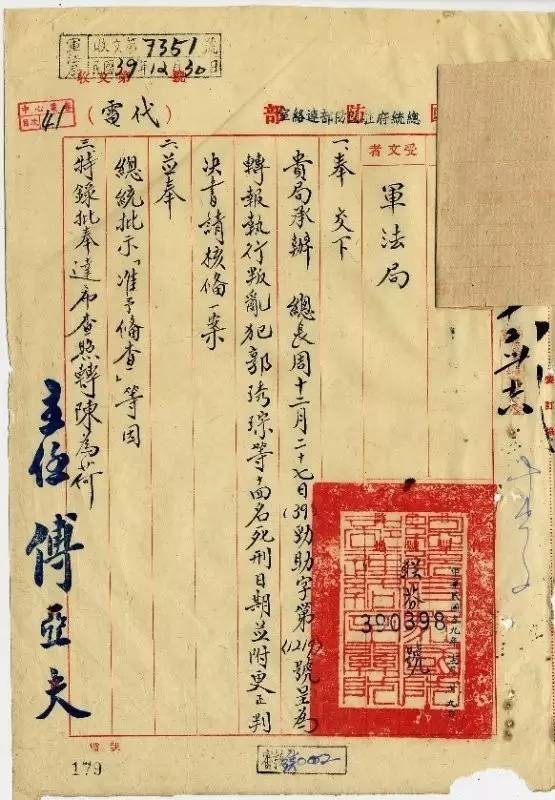 軍法局 收文第7351號
民國39年12月30日
收文第 號
中心檔卷
目次 41
(代電)
總統府駐國防部連絡室
受文者
軍法局
一、奉 交下
貴局承辦 總長周十二月二十七日(39)勁助字第(1219)號呈為
轉報執行叛亂犯郭琇琮等十四名死刑日期並附更正判
決書請核備一案
二、茲奉
總統批示「准予備查」等因
三、特錄批奉達希查照轉陳為荷
主任 傅亞夫
390398
號
179